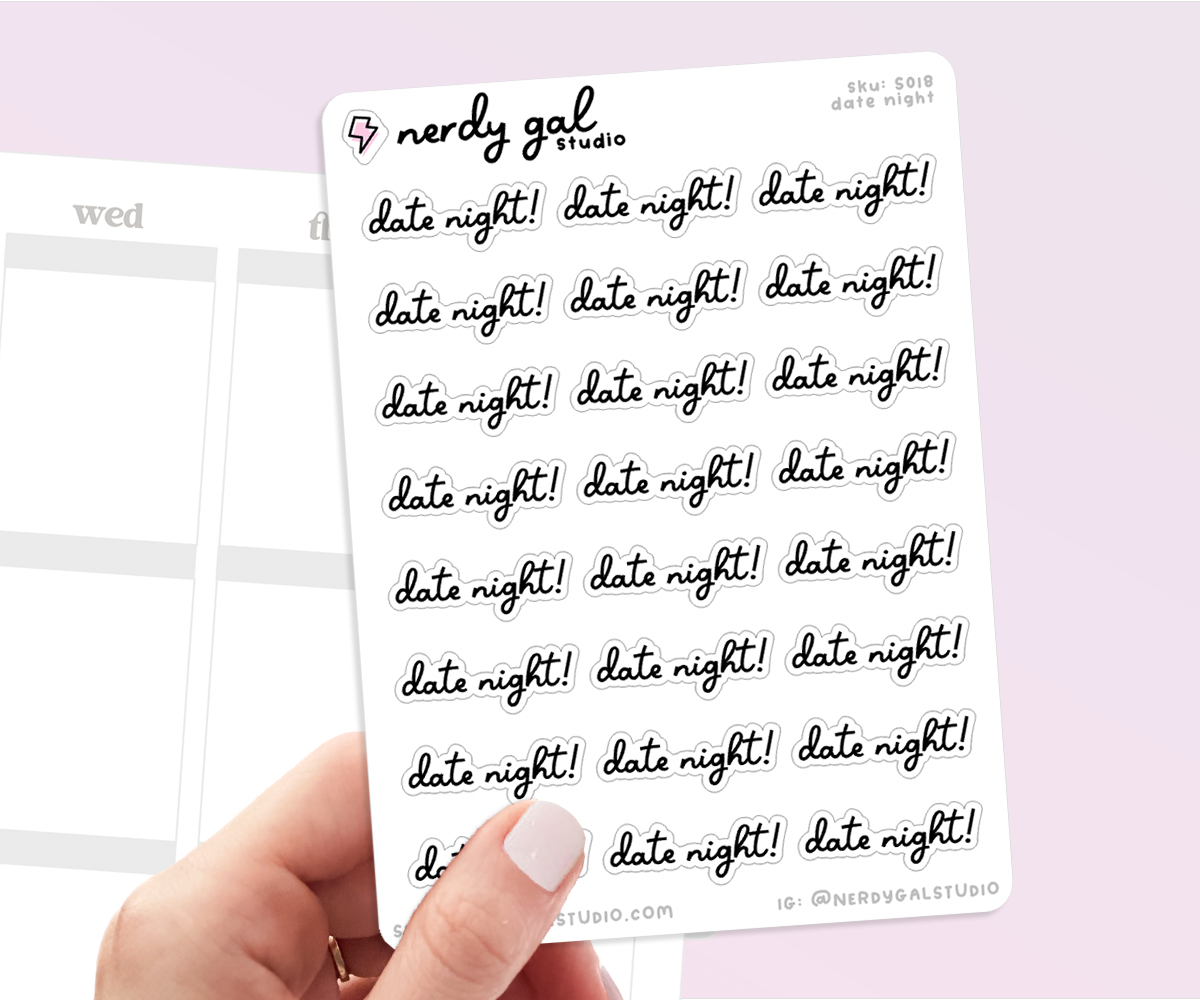 wed
nerdy gal
studio
sku: S018
date night
date night! date night! date night!
date night! date night! date night!
date night! date night! date night!
date night! date night! date night!
date night! date night! date night!
date night! date night! date night!
date night! date night! date night!
date night! date night!
IG: @NERDYGALSTUDIO